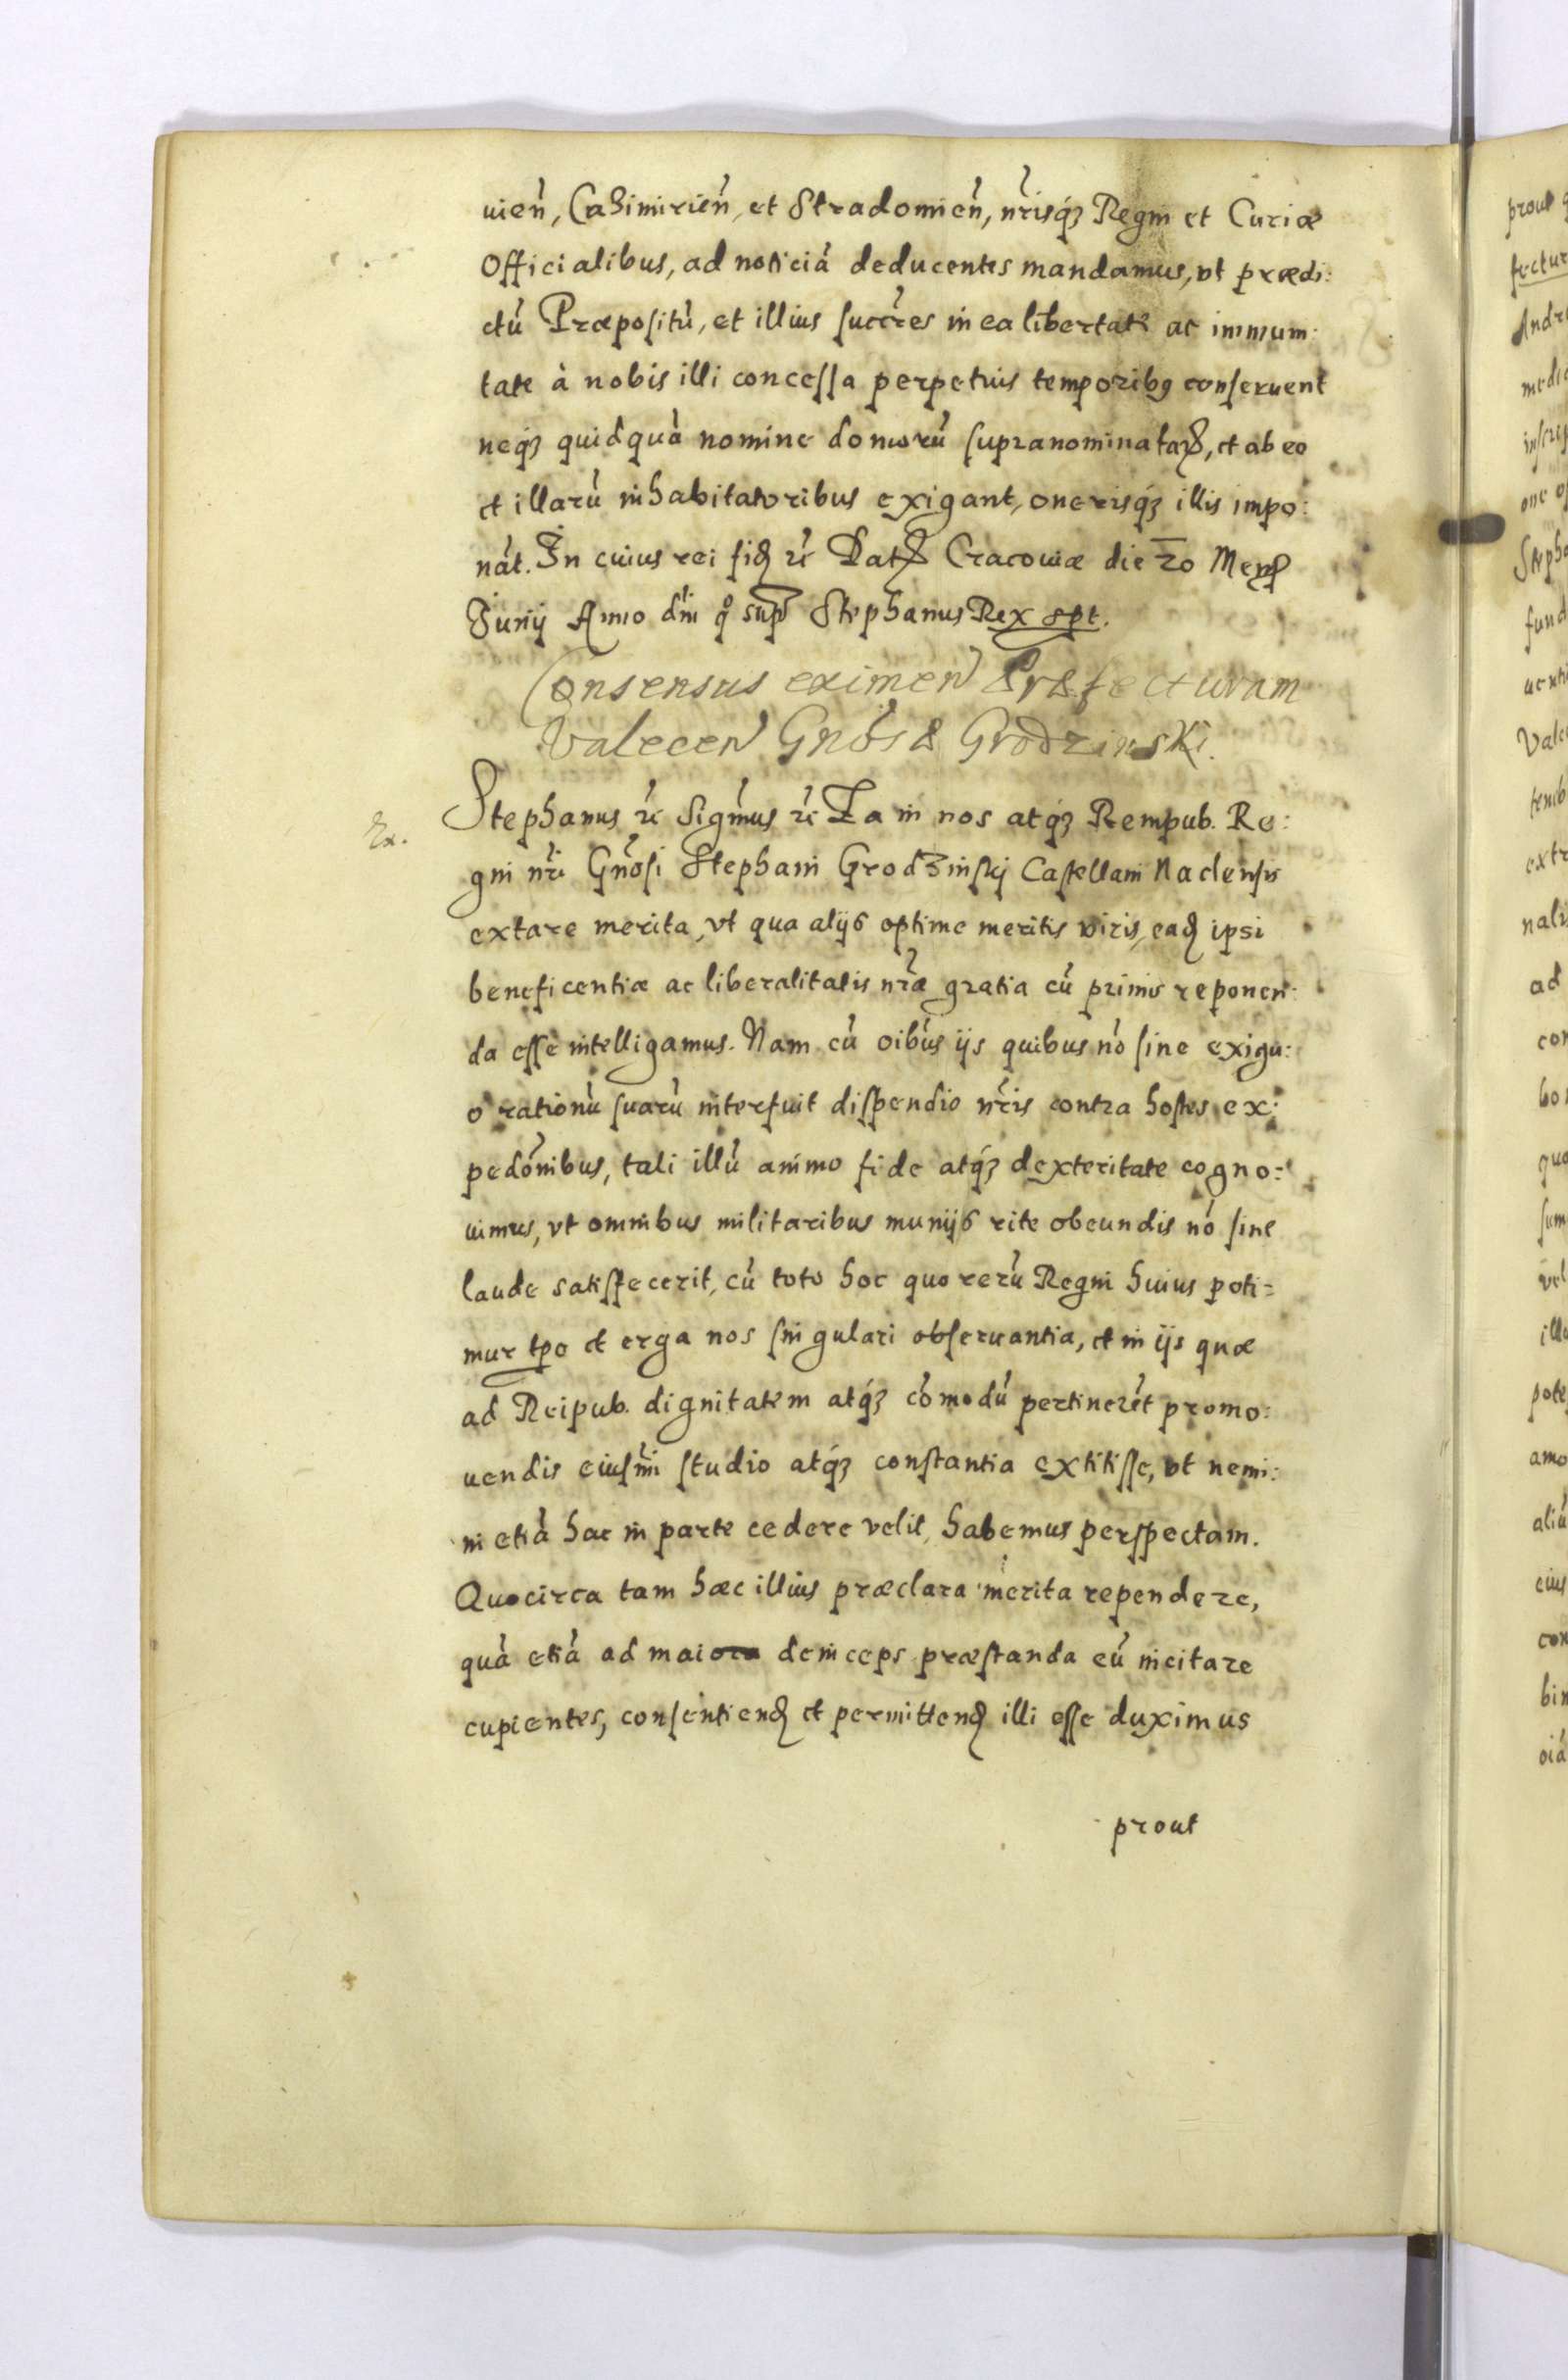 uień, Cazimirień, et Stradomień, nr̃isq́3 Regni et Curiæ
Officialibus, ad noticiã deducentes mandamus, vt prædi:
ctũ Præpositũ, et illius succr̃es in ea libertate ac immuni:
tate à nobis illi concessa perpetuis temporibꝫ conseruent
neq́3 quidquã nomine domorũ supranominataꝝ, et ab eo
et illarũ inhabitatoribus exigant, onerisq́3 illis impo:
nãt. In cuius rei fidꝫ rc̃ Datꝭ Cracouiæ die 20 Mensꝭ
Junij Anno dñi qͦ supꝭ Stephanus Rex spt.
Consensus eximeń Præfecturam
Valeceń Gnõs & Grodzinski.
Ex.
Stephanus rc̃ Sigm̃us rc̃ Ea in nos atq́3 Rempub. Re:
gni nr̃i Gñosi Stephani Grodzinskj Castellani Naclensis
extare merita, vt qua alijs optime meritis viris, eadꝫ ipsi
beneficentiæ ac liberalitatis nr̃æ gratia cũ primis reponen:
da esse intelligamus. Nam cũ oĩbus ijs quibus nõ sine exigu:
o rationũ suarũ interfuit dispendio nr̃is contra hostes ex:
pedõnibus, tali illũ animo fide atq́3 dexteritate cogno:
uimus, vt omnibus militaribus munijs rite obeundis nõ sine
laude satisfecerit, cũ toto hoc quo rerũ Regni huius poti=
mur tp̃e et erga nos singulari obseruantia, et in ijs quæ
ad Reipub. dignitatem atq́3 cõmodũ pertinerẽt promo:
uendis eiusm̃i studio atq́3 constantia extitisse, vt nemi:
ni etiã hac in parte cedere velit, habemus perspectam.
Quocirca tam hæc illius præclara merita rependere,
quã etiã ad maiora deinceps præstanda eũ incitare
cupientes, consentiendꝫ et permittendꝫ illi esse duximus
prout